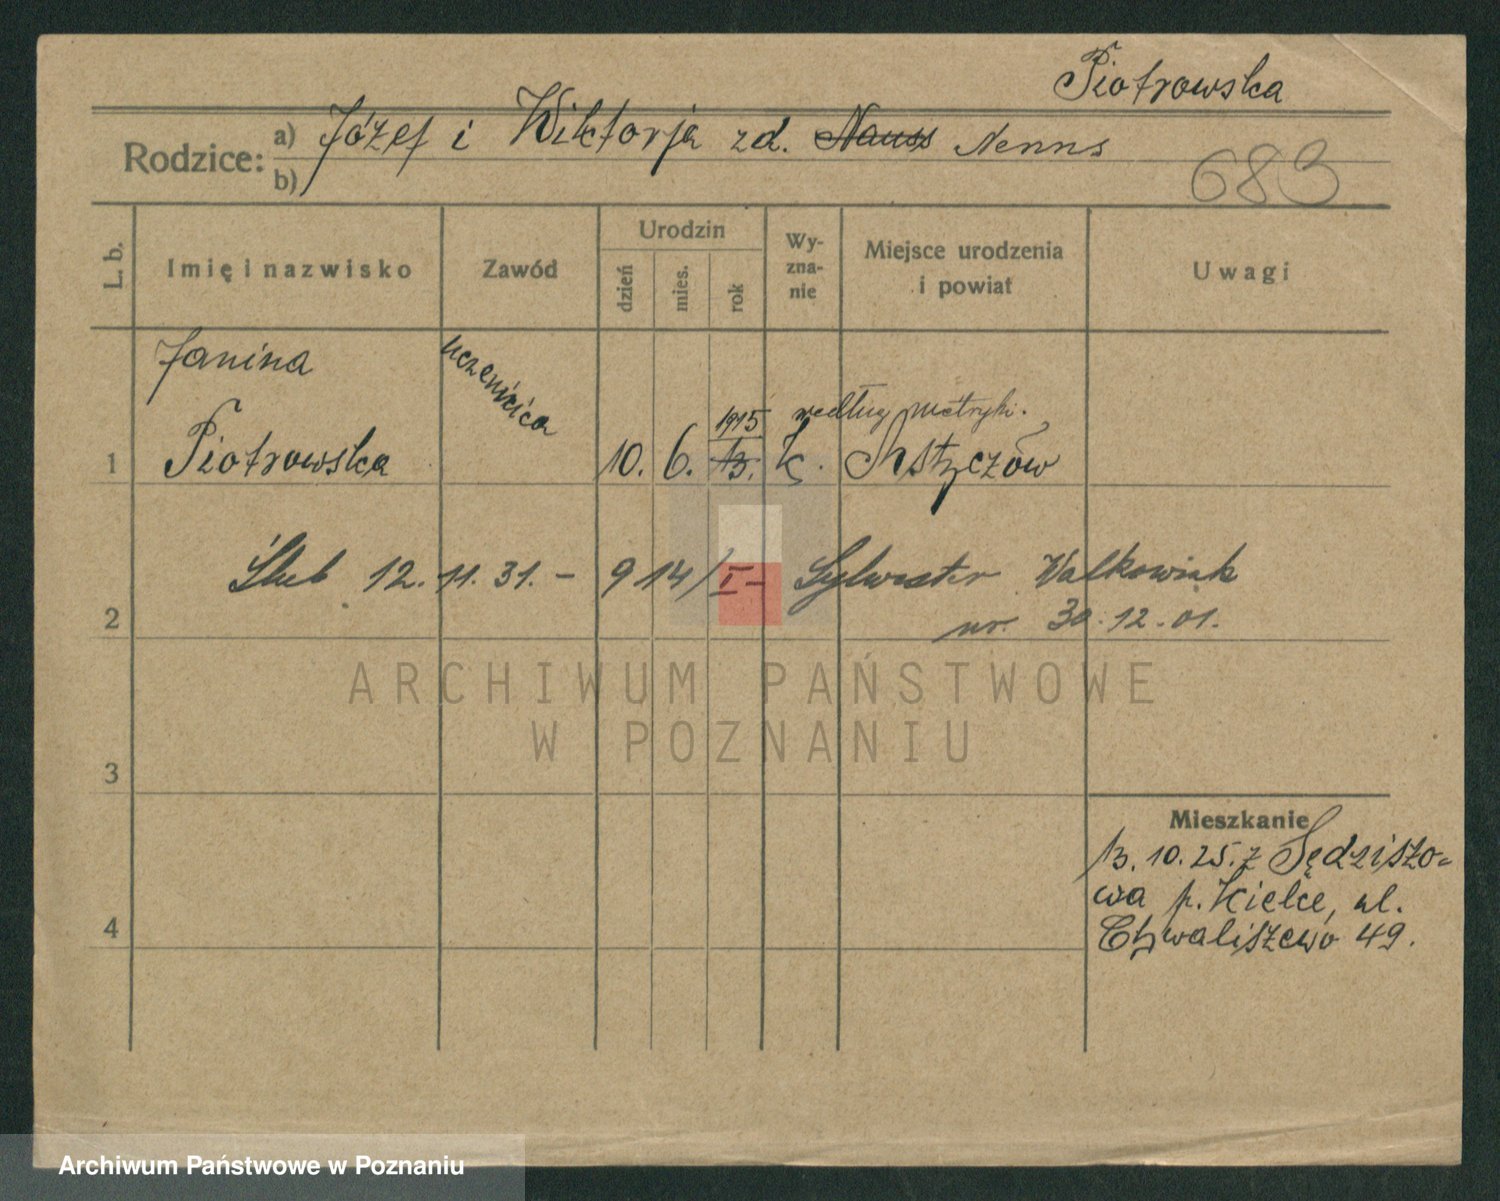 Piotrowska
Rodzice: a) Józef i Wiktorja zd. Nauss Nenns
b)
683
L. b.
Imię i nazwisko
Zawód
Urodzin
dzień
mies.
rok
Wy-
zna-
nie
Miejsce urodzenia
i powiat
Uwagi
Janina
uczenica
1915 według metryki.
1 Piotrowska 10. 6. 13. k.
Ślub 12. 11. 31. – 914/I – Sylwester Walkowiak
2 ur. 30.12.01.
ARCHIWUM PAŃSTWOWE
W POZNANIU
3
Mieszkanie
13.10.25. z Sędziszo-
wa p. Kielce, ul.
4 Chwaliszewo 49.
Archiwum Państwowe w Poznaniu